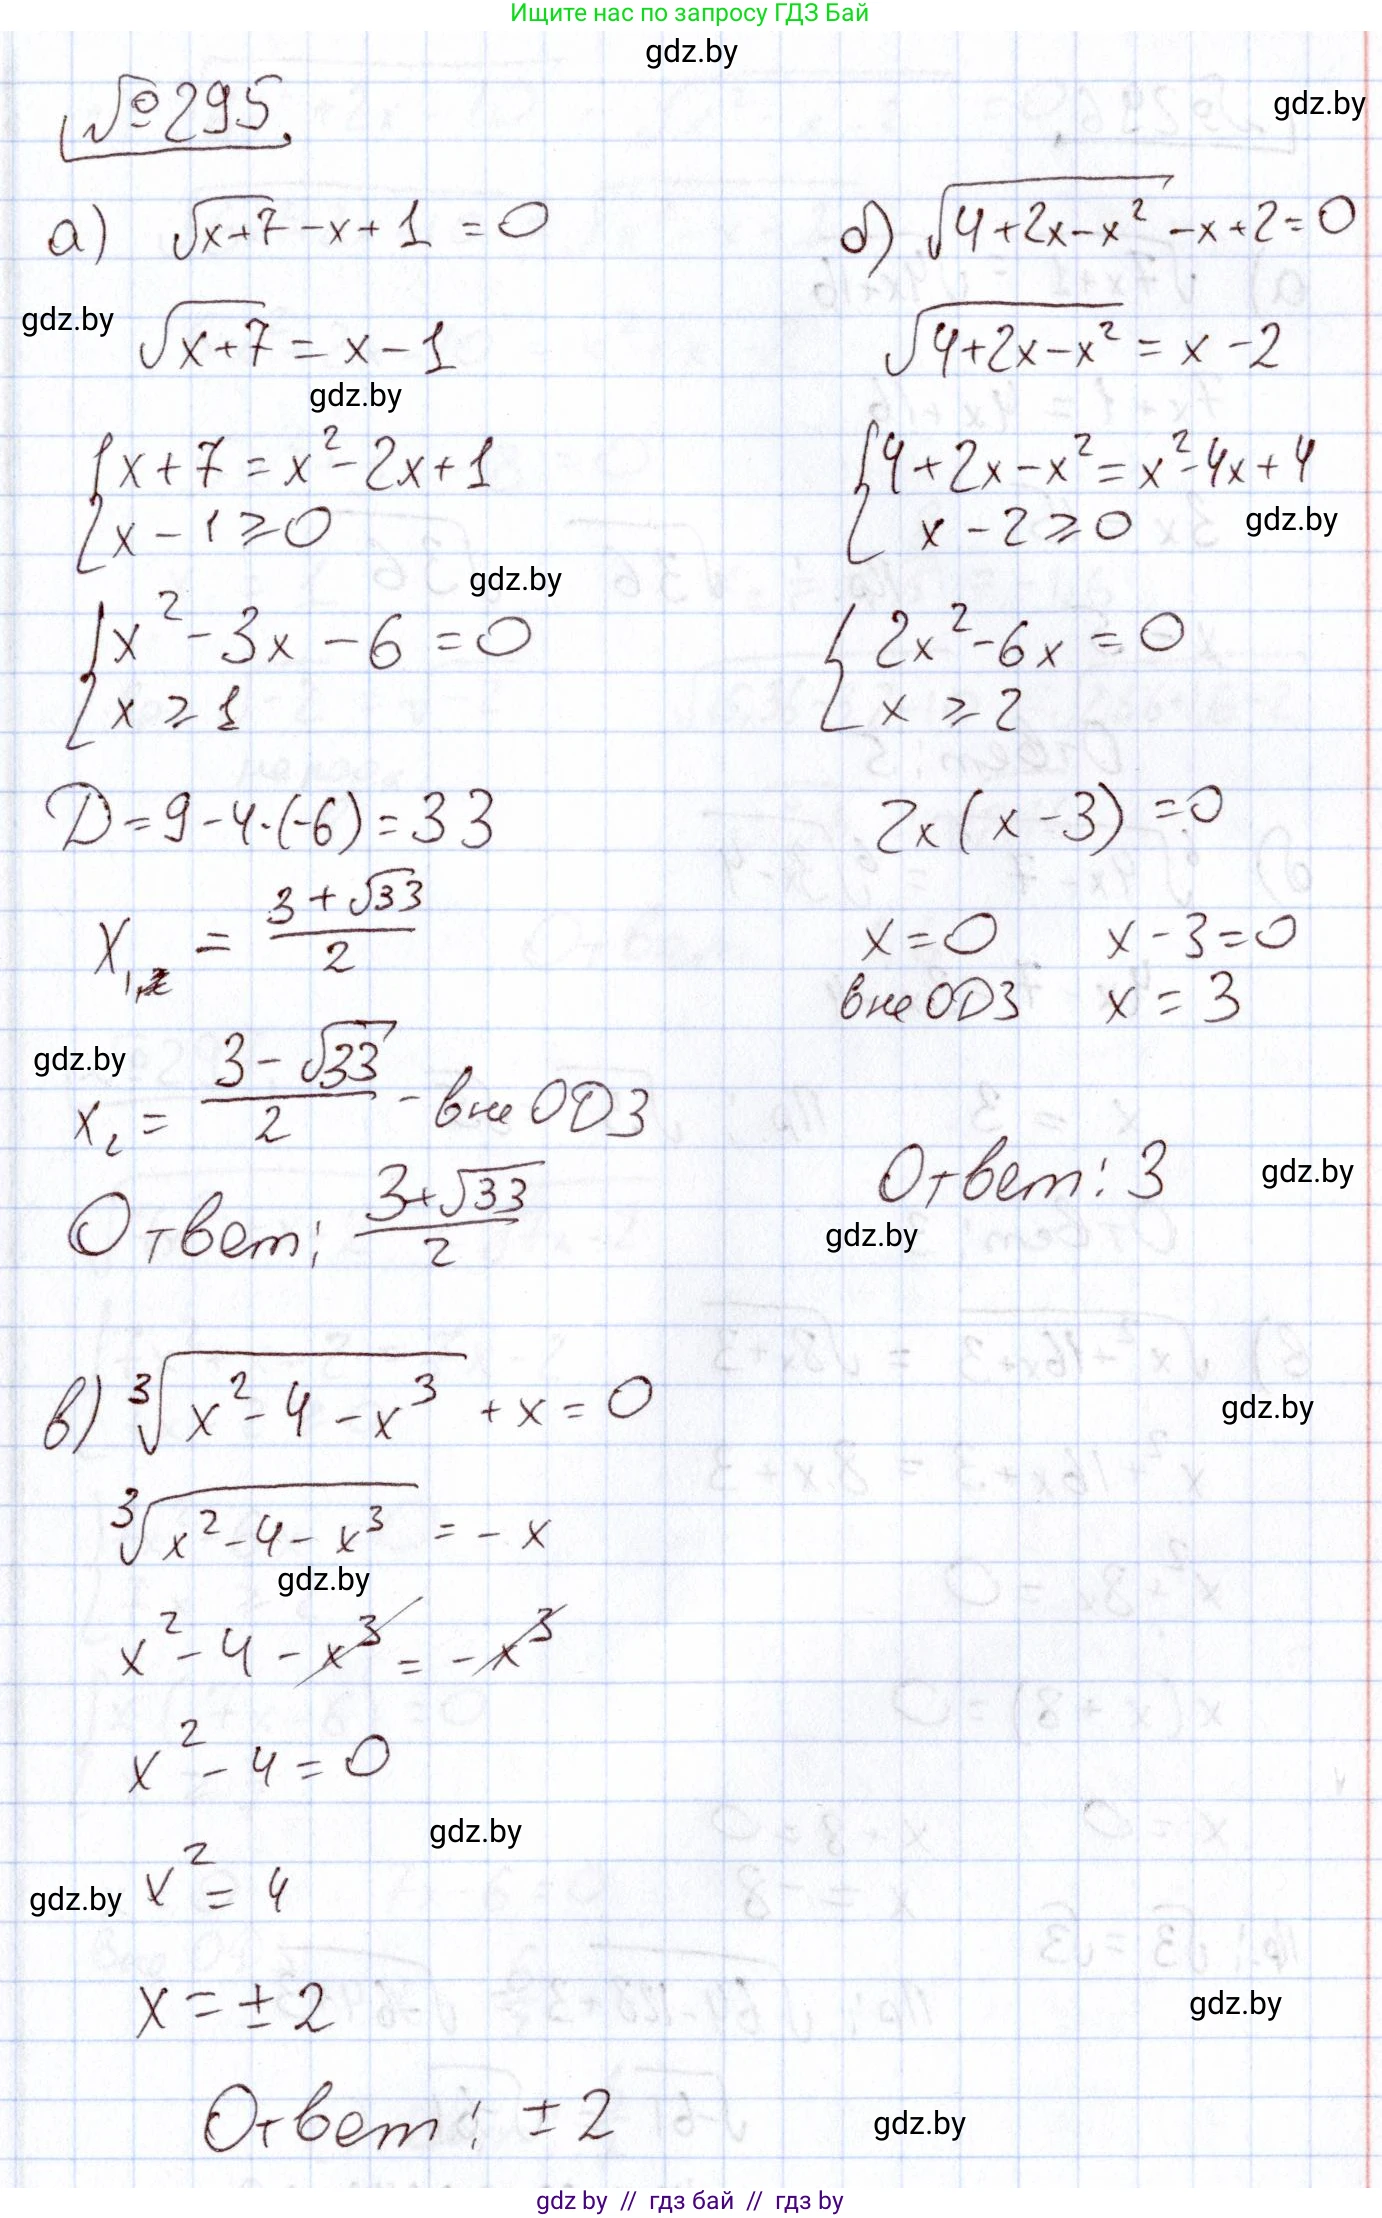 Ищите нас по запросу ГДЗ Бай
gdz.by
gdz.by
№295.
а) √(x+7) - x + 1 = 0
gdz.by
√(x+7) = x - 1
gdz.by
{x + 7 = x² - 2x + 1
{x - 1 ⩾ 0
gdz.by
{x² - 3x - 6 = 0
{x ⩾ 1
D = 9 - 4·(-6) = 33
x₁ = (3 + √33)/2
gdz.by
x₂ = (3 - √33)/2 - вне ОДЗ
Ответ: (3+√33)/2
б) √(4+2x-x²) - x + 2 = 0
√(4+2x-x²) = x - 2
{4 + 2x - x² = x² - 4x + 4
{x - 2 ⩾ 0
gdz.by
{2x² - 6x = 0
{x ⩾ 2
2x(x - 3) = 0
x = 0 x - 3 = 0
вне ОДЗ x = 3
Ответ: 3
gdz.by
gdz.by
в) ³√(x² - 4 - x³) + x = 0
gdz.by
³√(x² - 4 - x³) = - x
gdz.by
x² - 4 - x³ = - x³
x² - 4 = 0
gdz.by
x² = 4
gdz.by
x = ± 2
gdz.by
Ответ: ± 2
gdz.by
gdz by // гдз бай // гдз by